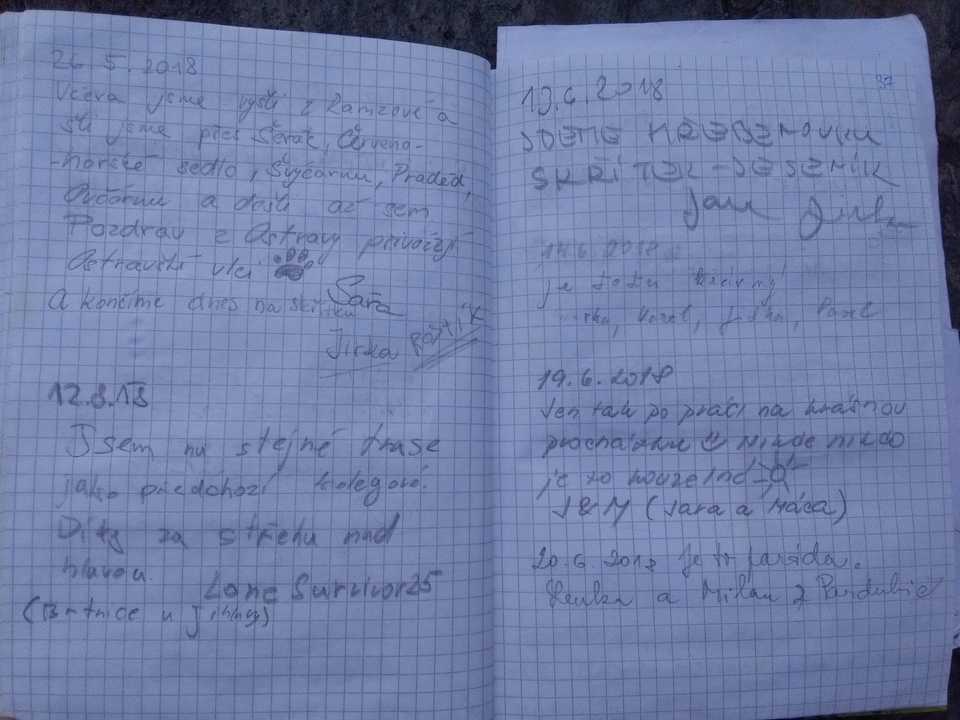 26.5.2018
Včera jsme vyšli z Ramzové a
šli jsme přes Šerák, Červeno-
-horské sedlo, Švýcárnu, Praděd,
Ovčárnu a došli až sem
Pozdrav z Ostravy přivážejí
Ostravští vlci
A končíme dnes na skřítku
Sára
Jirka
12.8.18
Jsem na stejné trase
jako předchozí kolegové.
Díky za střechu nad
hlavou.
Lone Survivor25
(Brtnice u Jihlavy)
37
19.6.2018
JDEME HŘEBENOVKU
SKŘÍTEK-JESENÍK
Jan
2018
je
Karel, Jitka, Pavel
19.6.2018
Jen tak po práci na krásnou
procházku nikde nikdo
je to kouzelné
J&M (Jara a Máca)
20.6.2018 je to paráda.
Lenka a Milan z Pardubic